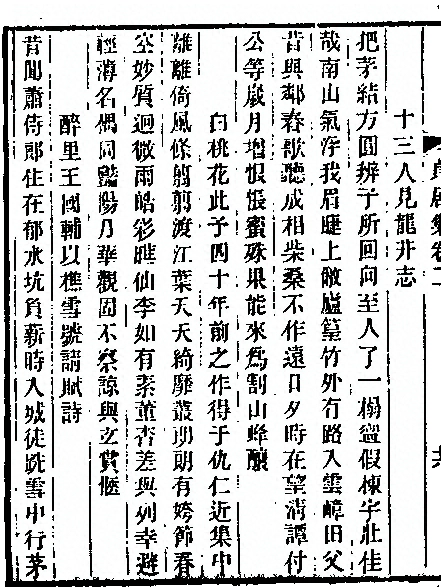 十三人見龍井志
把茅結方圓辨子所回向至人了一榻盥假棟宇壯佳
哉南山氣浮我眉睫上敞廬篁竹外有路入雲嶂田父
昔與鄰舂歌聽成相柴桑不作遠日夕時在望清譚付
公等歲月增恨悵蜜殊果能來爲割山蜂釀
白桃花此子四十年前之作得于仇仁近集中
離離倚風條翦翦渡江葉夭夭綺靡叢朗朗有姱節春
空妙質迥微雨皓彩曄仙李如有素董杏差與列幸避
輕薄名偶同豔陽月華觀固不察諒與玄賞愜
醉里王國輔以樵雪號請賦詩
昔聞蕭侍郎住在郁水坑負薪時入城徒跣雪中行茅